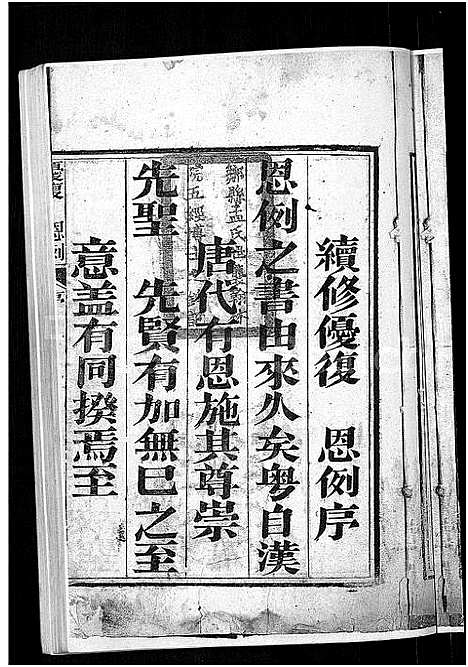 續修優復　恩例序
恩例之書由來久矣粤自漢
唐代有恩施其尊崇
先聖　先賢有加無已之至
意盖有同揆焉至
優復　恩例　序